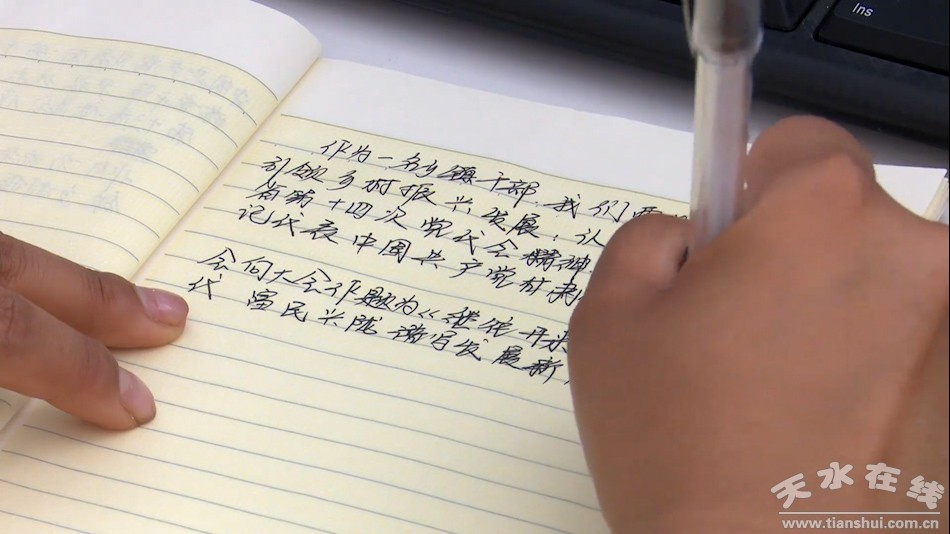 Ins
作为一名乡镇干部,我们要
引领乡村振兴发展,认
省第十四次党代会精神
记代表中国共产党甘肃
会向大会作题为《继往开来
代 富民兴陇谱写发展新
天水在线
www.tianshui.com.cn